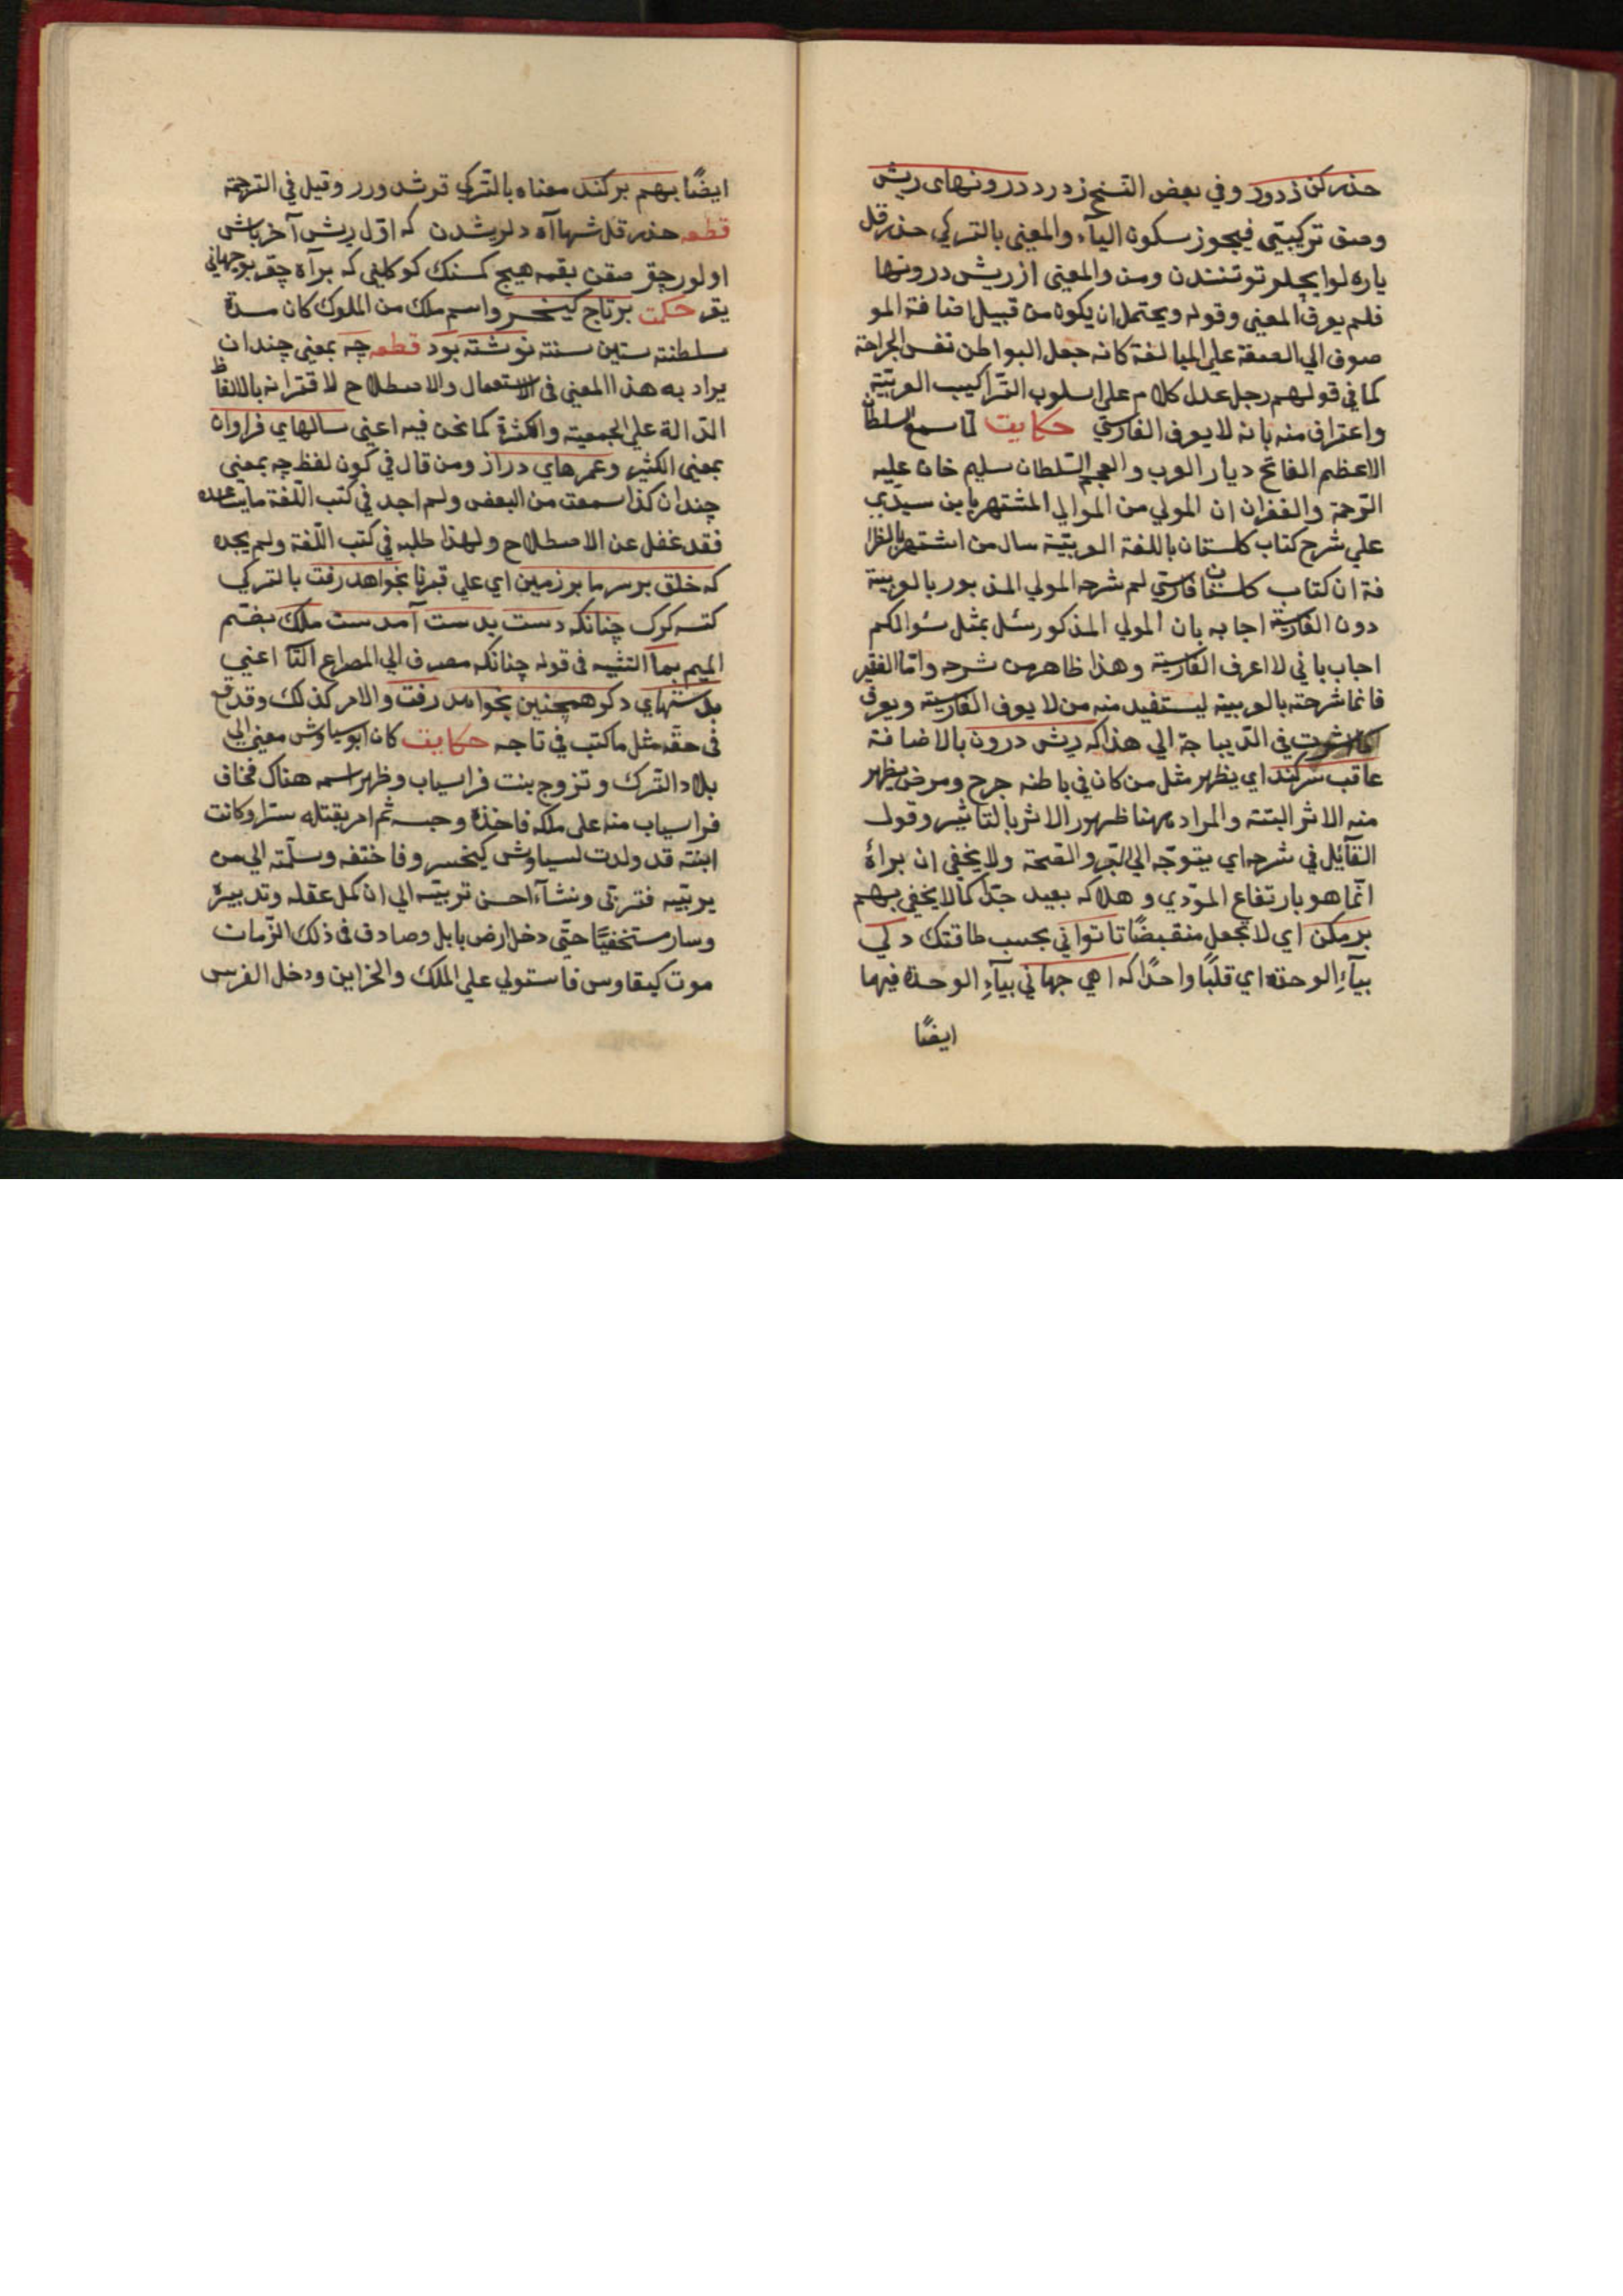 حذر كن ز درد و في بعض النسخ ز درد درونهاى ريش
وصف تركيبتي فيجوز سكون الياء والمعنى بالتركي حذر قل
ياره لو ايچلر توتنندن ومن والمعنى از ريش درونها
فلم يعرف المعنى وقوله ويحتمل ان يكون من قبيل اضافة المو
صوف الي الصفة علي المبالغة كانه جعل البواطن نفس الجراحة
كما في قولهم رجل عدل كلام علي اسلوب التراكيب العربيّة
واعتراف منه بانه لا يعرف الفارسي حكايت لما سمع السلطان
الاعظم الفاتح ديار العرب والعجم السّلطان سليم خان عليه
الرّحمة والغفران ان المولي من الموالي المشتهر بابن سيدي
علي شرح كتاب كلستان باللغة العربيّة سال من اشتهر بالظرا
فة ان كتاب كلستان فارسي لم شرحه المولي المزبور بالعربية
دون الفارسية اجابه بان المولي المذكور سئل بمثل سؤالكم
اجاب باني لا اعرف الفارسية وهذا ظاهر من شرحه وامّا الفقير
فانما شرحته بالعربية ليستفيد منه من لا يعرف الفارسية ويعرف
في الديباجة الي هذا كه ريش درون بالاضافة
عاقب سر كند اي يظهر مثل من كان في باطنه جرح ومرض يظهر
منه الاثر البتته والمراد ههنا ظهور الاثر بالتاثير وقول
القآئل في شرحه اي يتوجّه الي البرو والصّحة ولا يخفي ان براة
انّما هو بارتفاع المؤدي وهلاكه بعيد جدّا كما لا يخفي بهم
بر مكن اي لا تجعل منقبضًا تا تواني بحسب طاقتك دلي
بيآءِ الوحدة اي قلبًا واحدًا كه اهي جهاني بيآءِ الوحدة فيهما
ايضًا
ايضًا بهم بر كند معناه بالتركي قرشدورر وقيل في الترجمة
قطعه حذر قل شها آه دلريشدن كه اوّل ريش آخر باش
اولور چق صقن يقمه هيچ كمسنك كوكلني كه بر آه چقر بو جهاني
يقر حكمت بر تاج كيخسر واسم ملك من الملوك كان مدة
سلطنته ستين سنته نوشته بود قطعه چه بمعني چندان
يراد به هذا المعني في الاستعمال والاصطلاح لاقترانه بالالفاظ
الدّالة علي الجمعية والكثرة كما نحن فيه اعني سالهاي فراوان
بمعني الكثير وعمرهاي دراز ومن قال في كون لفظ چه بمعني
چندان كذا سمعت من البعض ولم اجد في كتب اللّغة
فقد غفل عن الاصطلاح ولهذا طلبه في كتب اللّغة ولم يجده
كه خلق بر سر ما بر زمين اي علي قبرنا بخواهد رفت بالتركي
كتسه كرك چنانكه دست بدست آمدست ملك بضم
الميم بما التثنيه في قوله چنانكه مصرف الي المصراع الثّا اعني
بدستهاي دكر همچنين بخواهد رفت والامر كذلك وقد وقع
في حقّه مثل ما كتب في تاجه حكايت كان ابو سياوش معني الي
بلاد التّرك وتزوج بنت فراسياب وظهر اسمه هناك فخاف
فراسياب منه علي ملكه فاخذه وحبسه ثم امر بقتله سترا وكانت
ابنته قد ولدت لسياوش كيخسر وفاختفه وسلّمته الي من
يربّيه فتربّي ونشآء احسن تربيته الي ان كمل عقله وتدبيره
وسار مستخفيًّا حتّي دخل ارض بابل وصادف في ذلك الزّمان
موت كيقاوس فاستولي علي الملك والخزاين ودخل الفرس